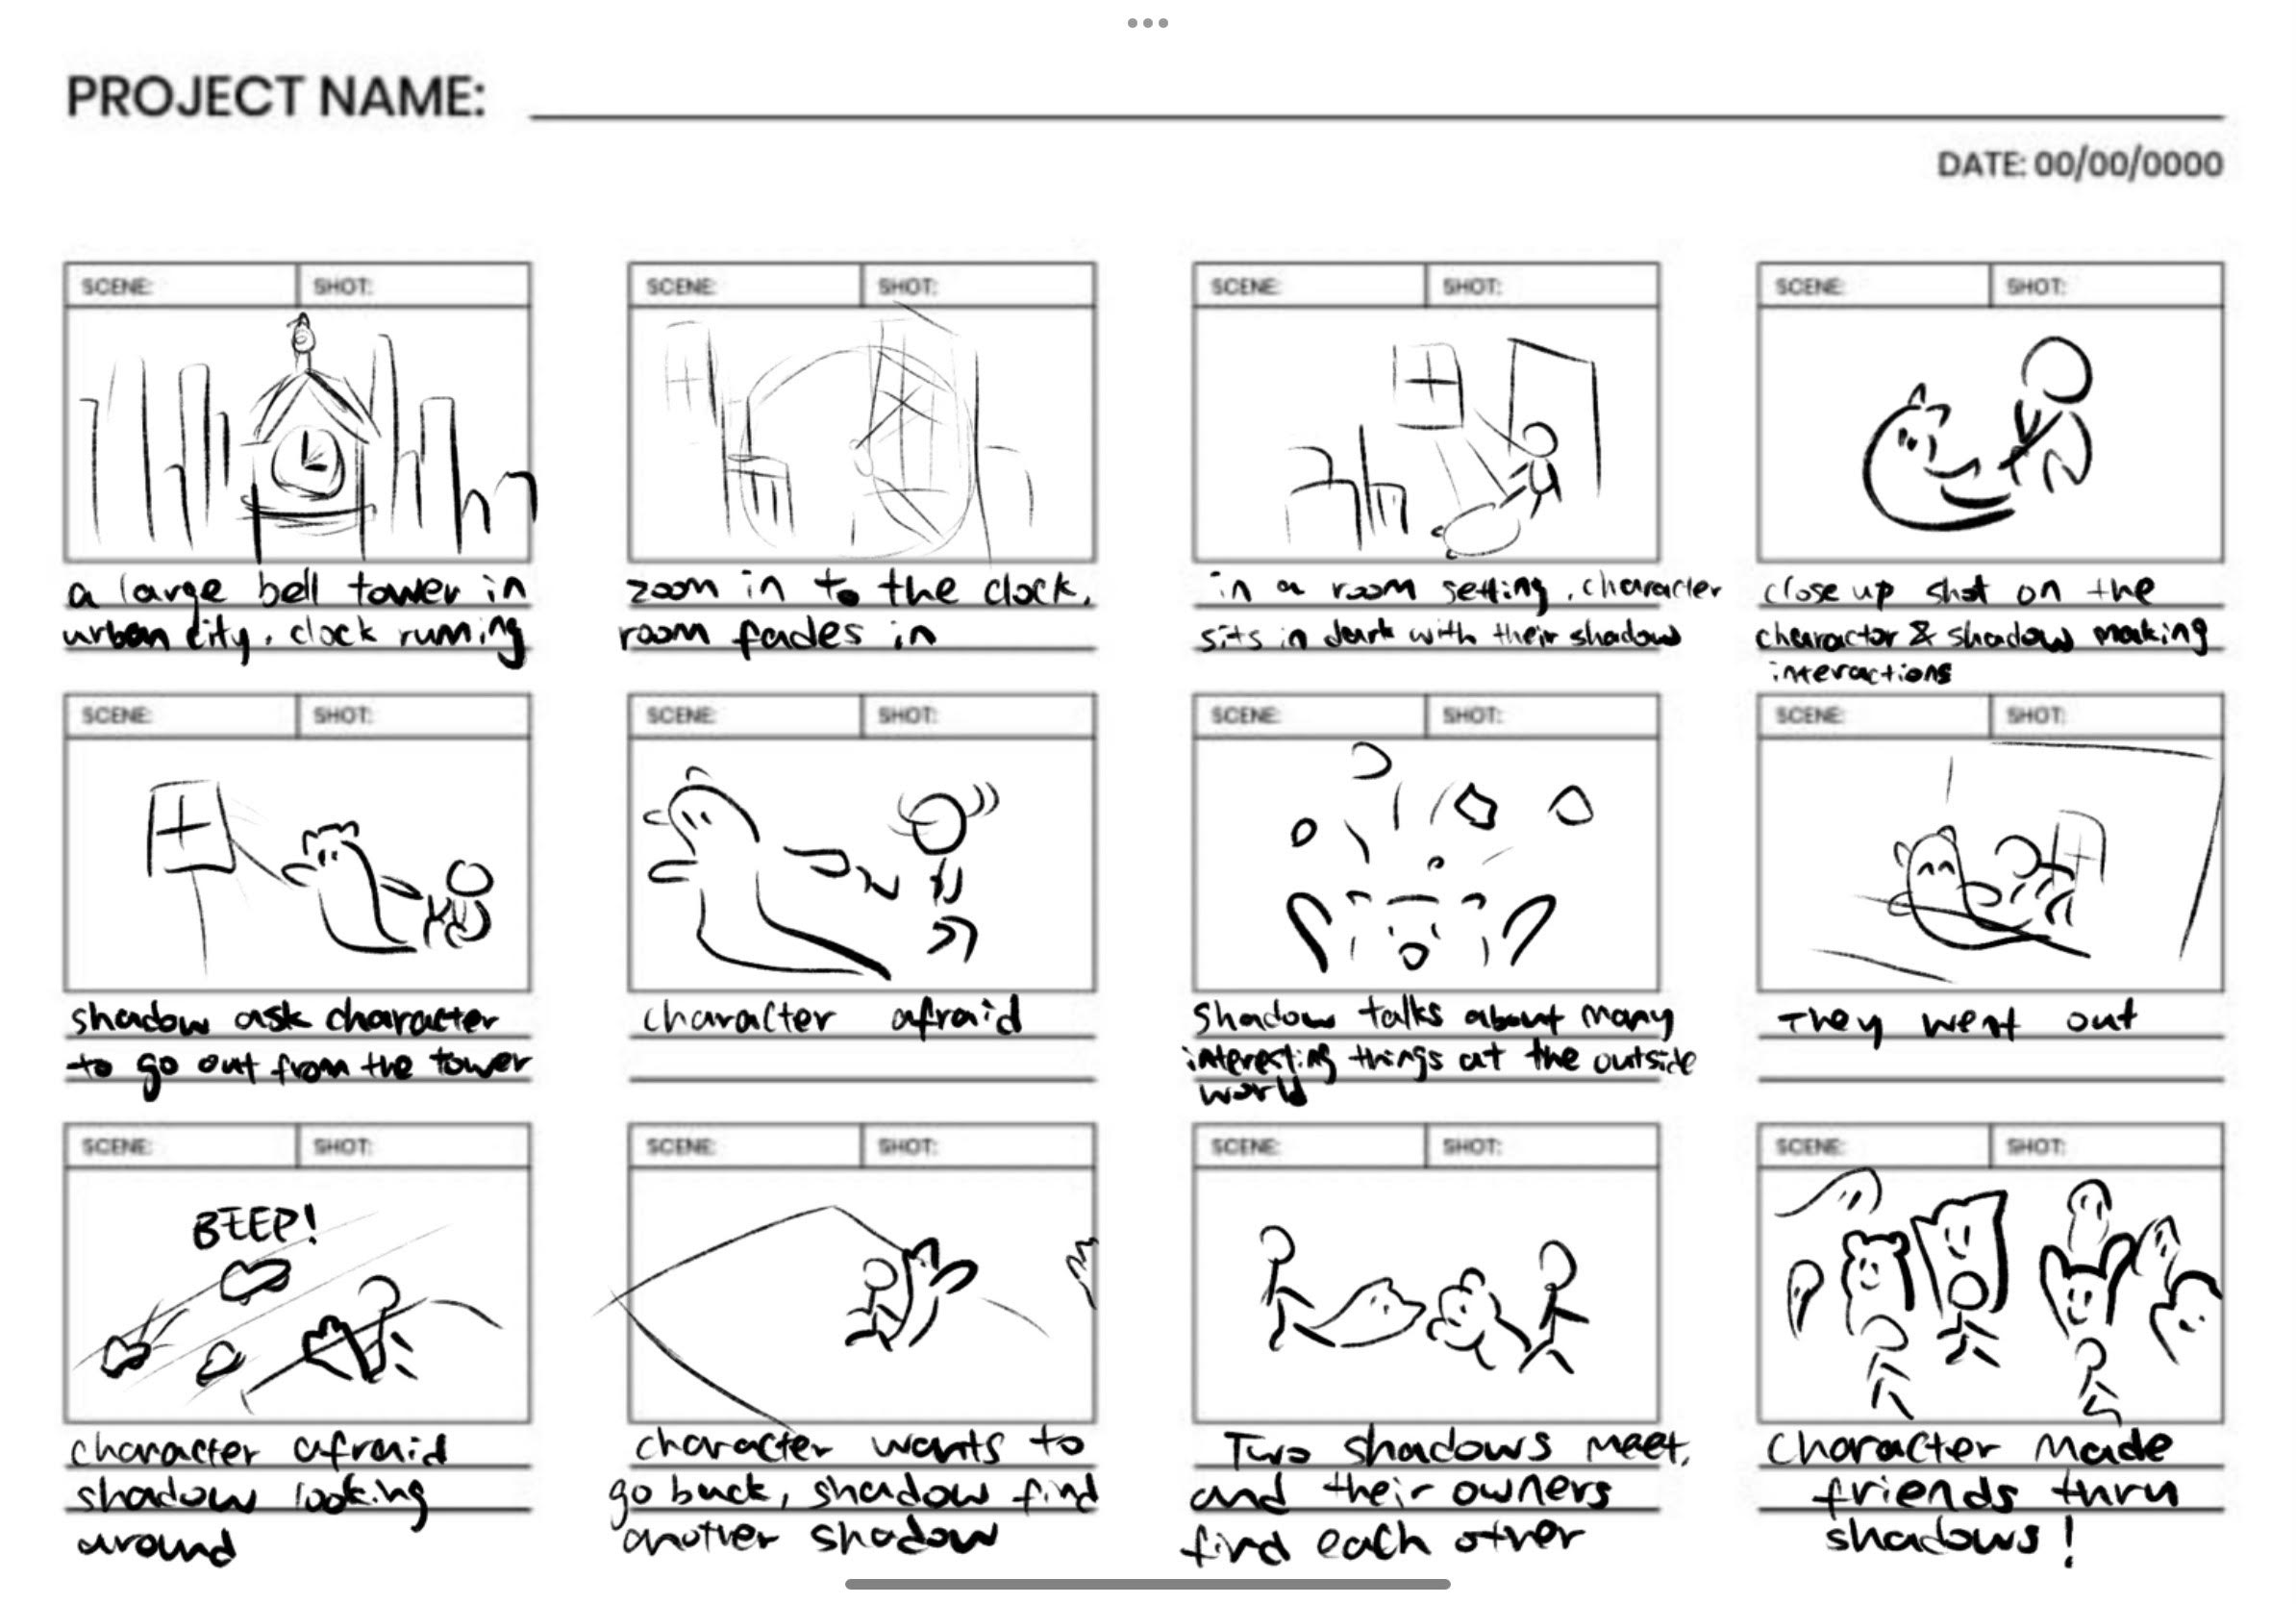 PROJECT NAME:
DATE: 00/00/0000
SCENE: SHOT:
a large bell tower in
urban city, clock running
SCENE: SHOT:
zoom in to the clock,
room fades in
SCENE: SHOT:
in a room setting, character
sits in dark with their shadow
SCENE: SHOT:
close up shot on the
charactor & shadow making
interactions
SCENE: SHOT:
shadow ask character
to go out from the tower
SCENE: SHOT:
character afraid
SCENE: SHOT:
Shadow talks about many
interesting things at the outside
world
SCENE: SHOT:
They went out
SCENE: SHOT:
BEEP!
character afraid
shadow looking
around
SCENE: SHOT:
character wants to
go back, shadow find
another shadow
SCENE: SHOT:
Two shadows meet,
and their owners
find each other
SCENE: SHOT:
Character made
friends thru
shadows!